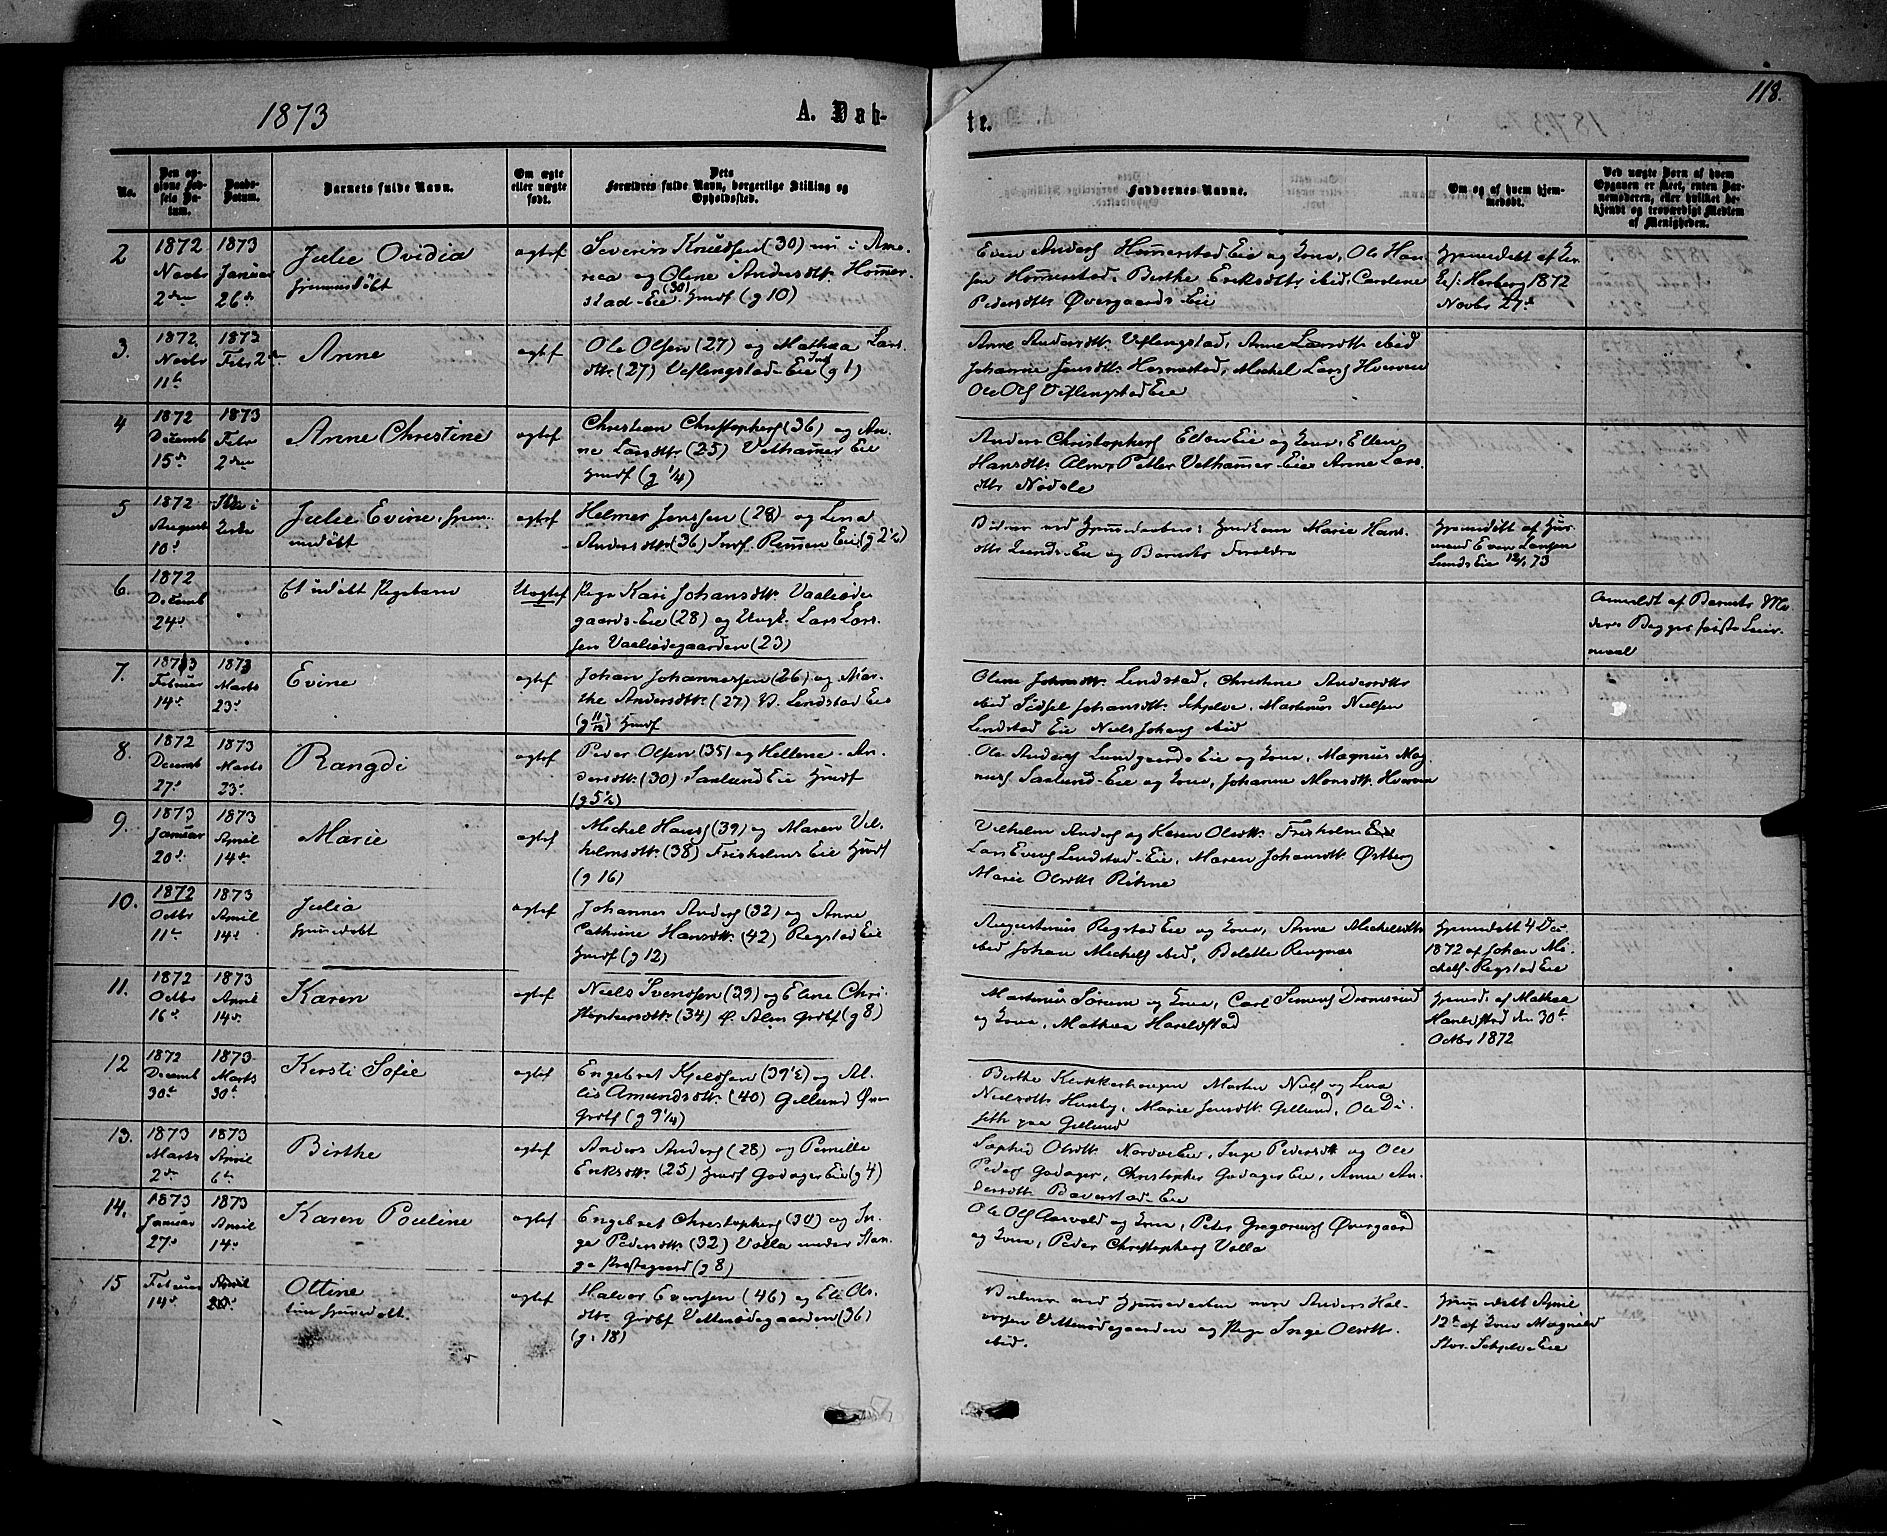 118.
1873
A. Døb-
te.
No.
Den op-
givne Fød-
sels Da-
tum.
Daabs-
Datum.
Barnets fulde Navn.
Om ægte
eller uægte
født.
Dets
Forældres fulde Navn, borgerlige Stilling og
Opholdssted.
Faddernes Navne.
Om og af hvem hjem-
medøbt.
Ved uægte Børn af hvem
Opgaven er skeet, enten Bar-
nemoderen, eller hvilket be-
kjendt og troværdigt Medlem
af Menigheden.
2
1872
Novbr
2den
1873
Januar
26de
Julie Ovidia
hjemmedøbt
ægtef
Severin Knudsen (30) nu i Ame-
rica og Oline Andersdtr. Hommer-
stad-Eie (30) Husmf (g 10)
Even Anders Hommerstad Eie og Kone, Ole Han-
sen Hommerstad, Birthe Eriksdtr ibid, Caroline
Pedersdtr Øvergaards-Eie
Hjemmedøbt af
Herberg 1872
Novbr 27d
3.
1872
Novbr
11te
1873
Febr 2d
Anne
ægtef
Ole Olsen (27) og Mathea Lars-
dtr. (27) Veflengstad-Eie Ind (g 1)
Anne Andersdtr. Veflengstad, Anne Larsdtr ibid
Johanne Jensdtr. Hernestad, Mickel Lars Hverven
Ole Ols Veflengstad Eie
4
1872
Decemb
15de
1873
Febr
2den
Anne Christine
ægtef
Christian Christophers (36) og An-
ne Larsdtr. (25) Velhammer Eie
Husmf (g 1/4)
Anders Christophers Eie og Kone, Ellen
Hansdtr. Alm, Petter Velhammer-Eie, Anne Lars
dtr Nødsle
5
1872
August
10d
Ikke i
Kirke
Julie Evine, hjem-
medøbt
ægtef
Helmer Jenssen (28) og Lena
Andersdtr. (36) Indf. Remmen Eie (g 2 1/2)
Vidner ved Hjemmedaaben: Husm Kone Marie Hans-
dtr Lunds-Eie og Barnets Foreldre
Hjemmedøbt af Hus-
mand Even Larsen
Lunds Eie 12/1 73
6.
1872
Decemb
24d
Et udøbt Pigebarn
Uægtef
Pige Kari Johansdtr. Vaaleøde-
gaards-Eie (28) og Ungk. Lars Lars-
sen Vaaleødegaarden (23)
Anmeldt af Barnets Mo-
der. Begges første Leier-
maal
7.
1873
Februar
14d
1873
Marts
23d
Evine
ægtef
Johan Johannessen (26) og Mar-
the Andersdtr. (27) V. Lindstad Eie
(g 11/12) Husmf
Oline Johnsdtr. Lindstad, Christine Andersdtr
ibid Sidsel Johansdtr. Schjelve, Martinus Nielsen
Lindstad Eie Niels Johans ibid
8.
1872
Decemb
27d
1873
Marts
23d
Rangdi
ægtef
Peder Olsen (35) og Hellene An-
dersdtr. (30) Saxlund Eie Husmf
(g 5 1/2)
Ole Anders Lundgaards Eie og Kone, Magnus Mag-
nus Saxlund-Eie og Kone, Johanne Monsdtr. Hverven
9.
1873
Januar
20d
1873
April
14d
Marie
ægtef
Mickel Hans (39) og Maren Vil-
helmsdtr. (38) Frisholms Eie Husmf
(g 16)
Vilhelm Anders og Karen Olsdtr. Frisholms Eie
Lars Evens Lindstad-Eie, Maren Johansdtr. Østberg
Marie Olsdtr Rihne
10.
1872
Octbr
11te
1873
April
14d
Julia
hjemmedøbt
ægtef
Johannes Anders (32) og Anne
Cathrine Hansdtr. (42) Regstad Eie
Husmf (g 12)
Augustinus Regstad Eie og Kone, Anne Mickelsdtr
ibid Johan Mickels ibid, Bolette Rengnes
Hjemmedøbt 4 Dec.
1872 af Johan Mi-
ckels. Regstad Eie
11.
1872
Octbr
16d
1873
April
14d
Karen
ægtef
Niels Svendsen (29) og Eline Chri-
stophersdtr. (34) Ø. Alm Grdbf (g 8)
Martinus Sørum og Kone, Carl Simens Dromsrud
og Kone, Mathea Hareldstad
Hjemd. af Mathea
Hareldstad den 30te
Octbr 1872
12
1872
Decemb
30te
1873
Marts
30te
Kersti Sofie
ægtef
Engebret Kjeldsen (39 1/2) og Al-
lis Amundsdtr. (40) Gillund Øv-
Grdbf (g 9 1/4)
Birthe Kirkkerhaugen Martin Niels og Lina
Nielsdtr Huseby, Marie Jensdtr. Gillund, Ole Di-
seth paa Gillund
13.
1873
Marts
2de
1873
April
6te
Birthe
ægtef
Anders Anders (28) og Pernille
Eriksdtr. (25) Husmf Godager Eie (g 4)
Sophie Olsdtr. Nordvi Eie, Inge Pedersdtr og Ole
Peders Godager, Christopher Godager Eie, Anne An-
dersdtr Baverstad-Eie
14.
1873
Januar
27d
1873
April
14d
Karen Pauline
ægtef
Engebret Christophers (30) og In-
ge Pedersdtr. (32) Volla under Stan-
ge Prestegaard (g 8)
Ole Ols Aasvold og Kone, Peter Gregorius Øvergaard
og Kone, Peder Christophers Volla
15
Februar
14d
April
20d
Ottine
hjemmedøbt.
ægtef
Halvor Evensen (46) og Eli Ols-
dtr. Grdbf Vettenødegaarden (36)
(g. 18)
Vidner ved Hjemmedaaben vare Anders Hal-
vorsen Vettenødegaarden og Pige Inge Olsdtr.
ibid.
Hjemmedøbt April
12te af Kone Magnild
Stor-Schjelve-Eie